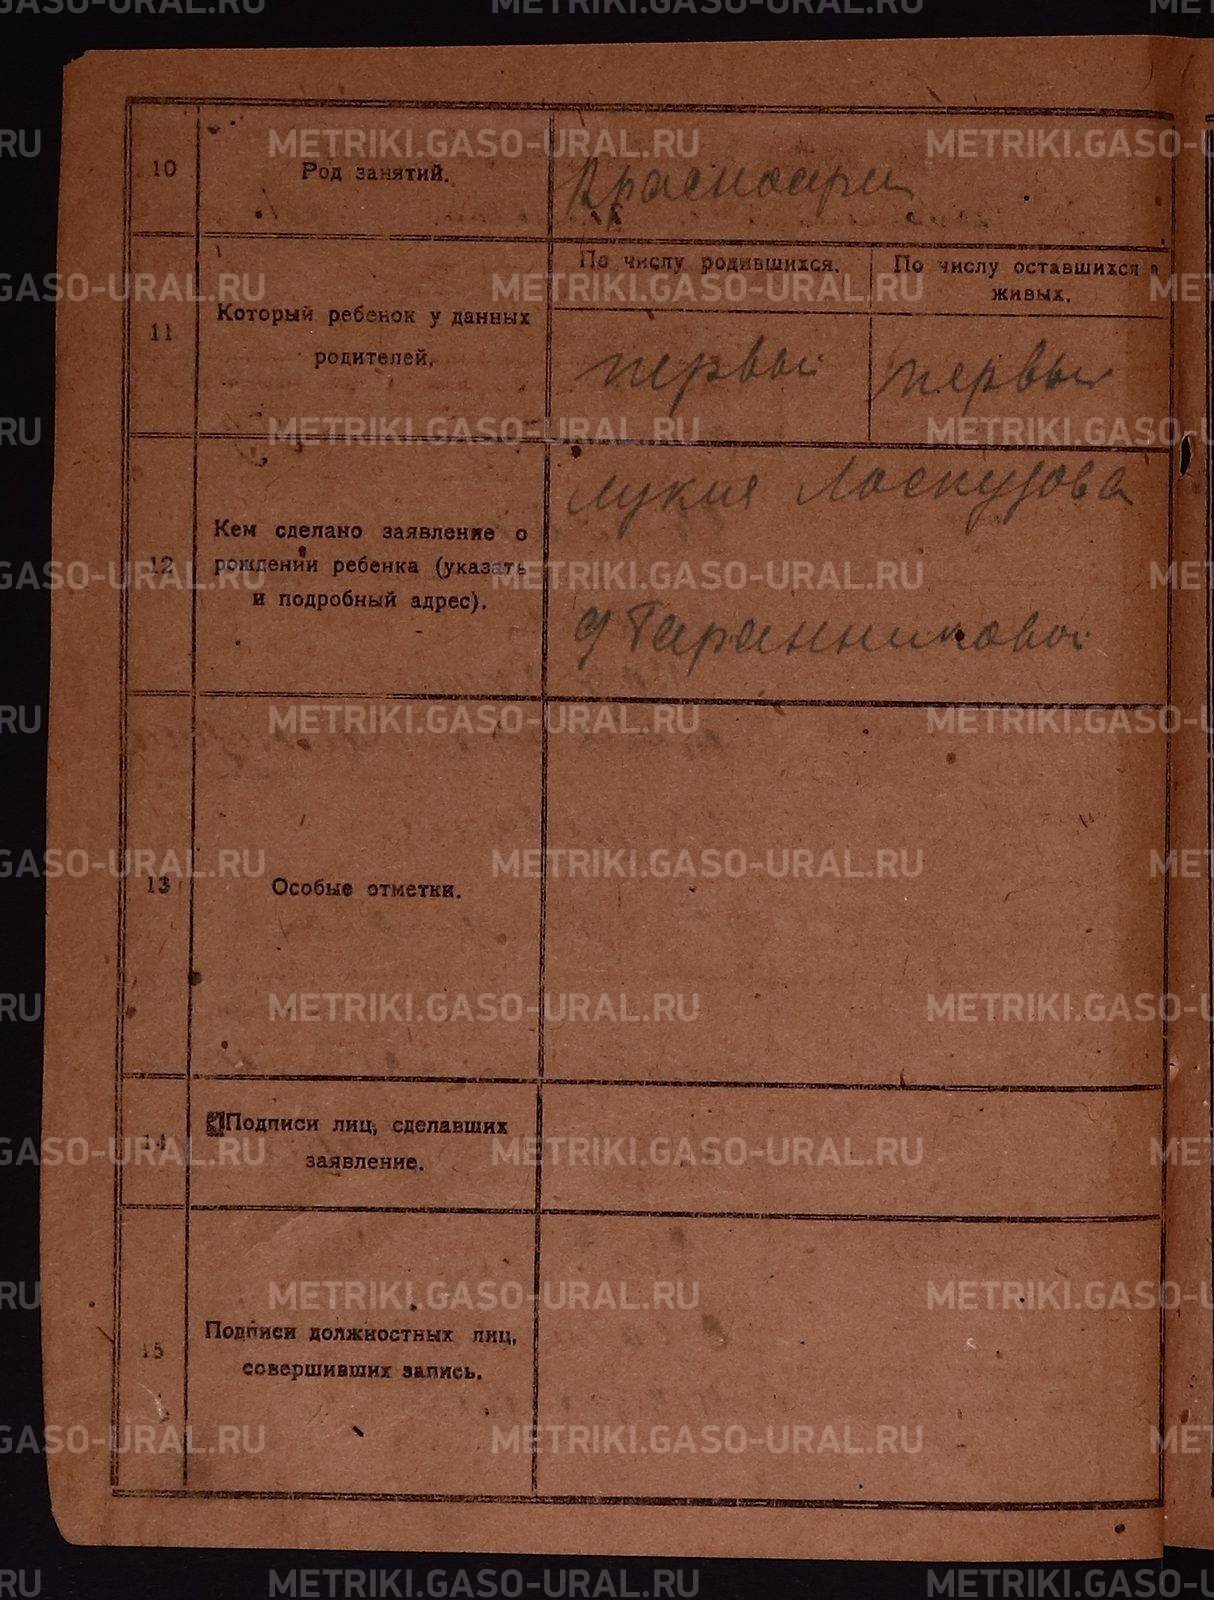 10
Род занятий.
Красноарм
11
Который ребенок у данных
родителей.
По числу родившихся.
По числу оставшихся в
живых.
первый
первый
12
Кем сделано заявление о
рождении ребенка (указать
и подробный адрес).
Лукия Лоскутова
д Таранникова
13
Особые отметки.
14
Подписи лиц, сделавших
заявление.
15
Подписи должностных лиц,
совершивших запись.
METRIKI.GASO-URAL.RU